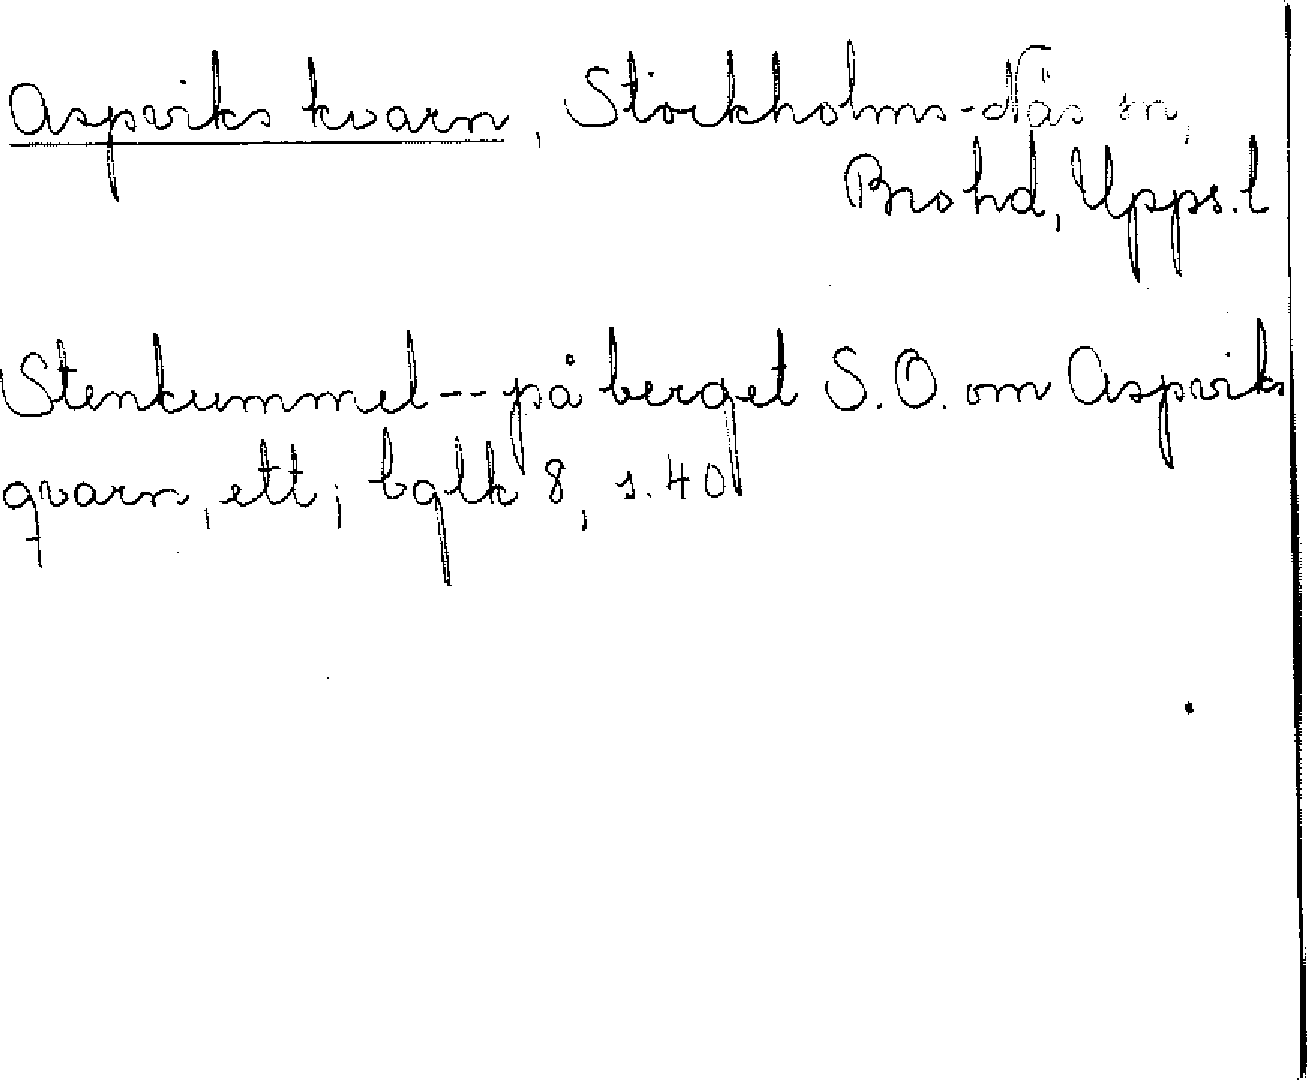 Aspviks kvarn, Stockholms-Näs sn,
Bro hd, Upps. l
Stenkummel -- på berget S.O. om Aspviks
qvarn, ett; bglk 8, s. 40